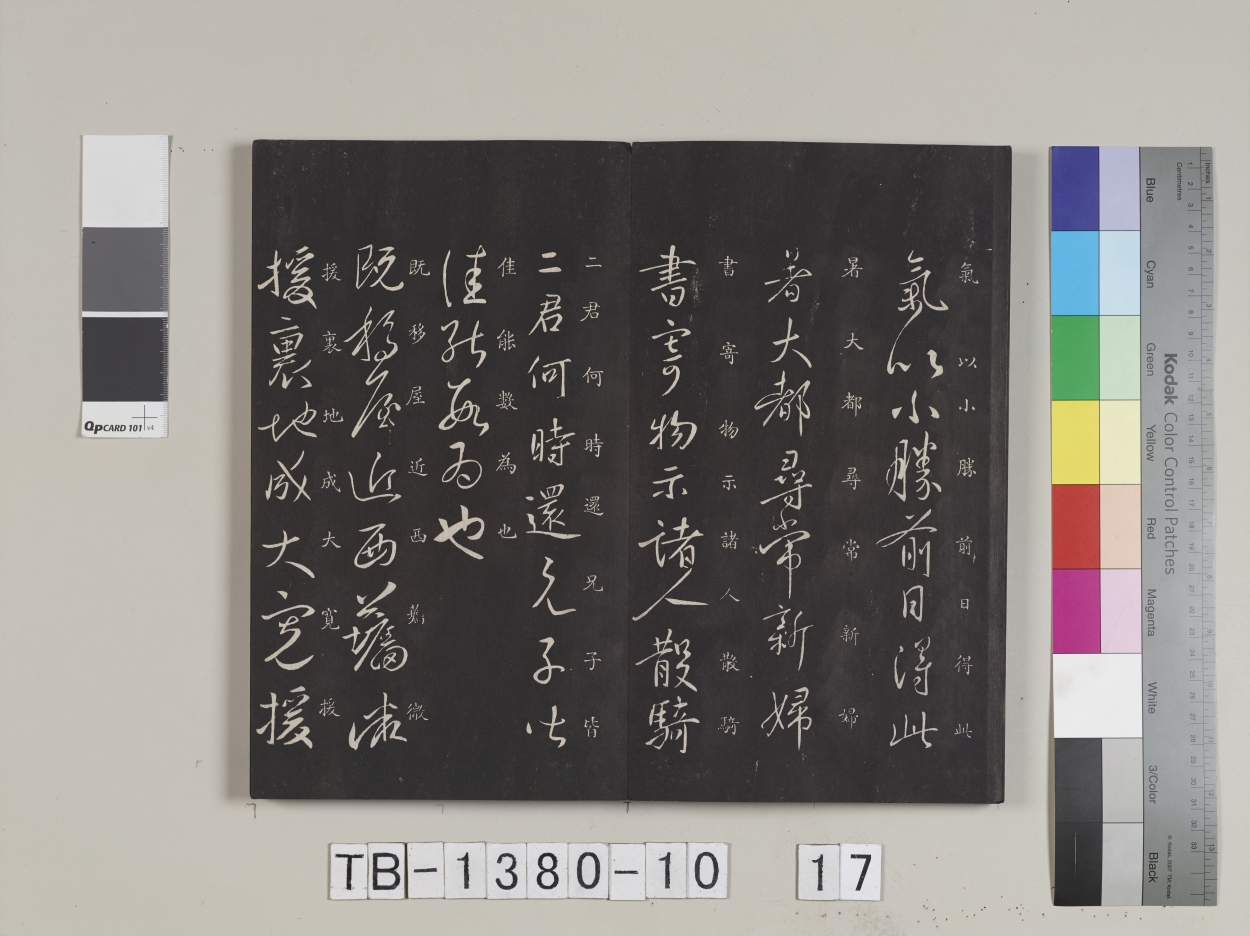 氣以小勝前日得此
氣以小勝前日得此
暑大都尋常新婦
暑大都尋常新婦
書寄物示諸人散騎
書寄物示諸人散騎
二君何時還兄子皆
二君何時還兄子皆
佳能數為也
佳能數為也
既移屋近西微
既移屋近西微
援裏地成大寬援
援裏地成大寬援
QPCARD 101 v4
TB-1380-10 17
Kodak Color Control Patches
Inches
Centimetres
Blue
Cyan
Green
Yellow
Red
Magenta
White
3/Color
Black